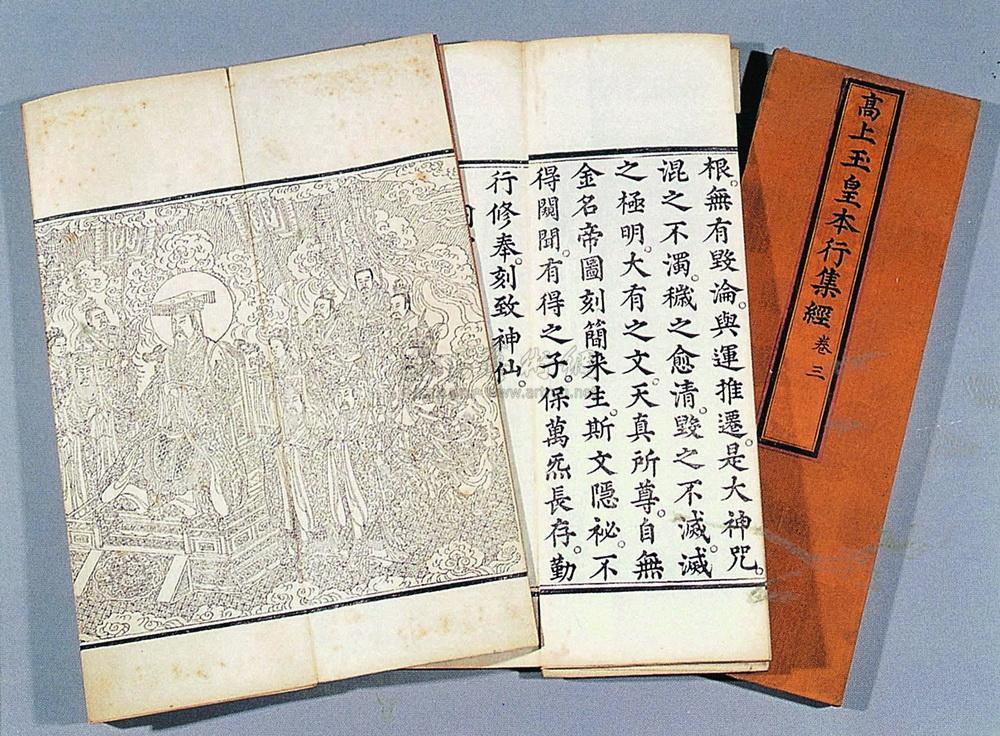 高上玉皇本行集經 卷三
根。無有毀淪。與運推遷。是大神咒。
混之不濁。穢之愈清。毀之不滅。滅
之極明。大有之文。天真所尊。自無
金名帝圖刻簡来生。斯文隱祕。不
得闚聞。有得之子。保萬炁長存。勤
行修奉。刻致神仙。